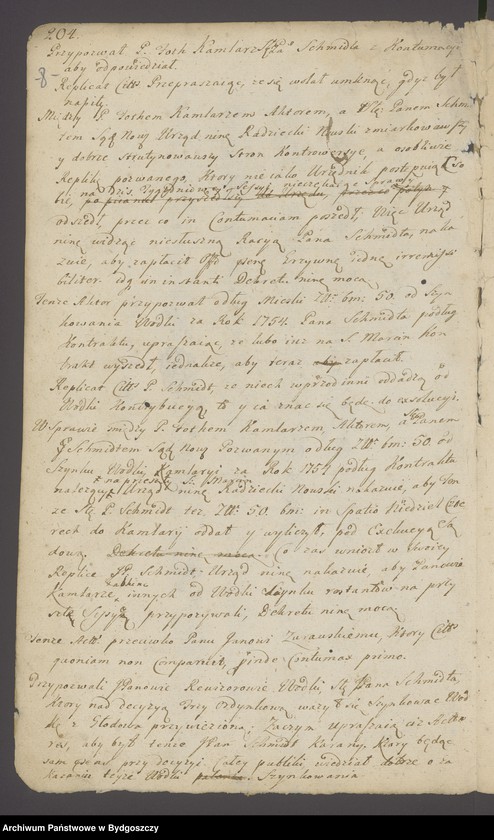 204.
Przypozwał P. Foth Kamlarz Sł. Pa Schmidta z Kontumacyi
aby odpowiedział.
8 Replicat Citts Przepraszaiąc, ze się wstał umknąć, gdyz był
napiły.
Między P. Fothem Kamlarzem Aktorem, a Panem Schm
tem Sąd Nowy Urząd ninę Radziecki Nowski zmiarkowawszy
y dobrze skrutynowawszy Stron Kontrowersye, a osobliwie
Replikę pozwanego, Ktory nie iako Urzędnik postąpił So
bie, na Dzis. Tygodniowy Sessyi, nieczekaiąc Sprawy
odszedł, przeco in Contumaciam poszedł. Więc Urząd
ninę widząc niesłuszną Racyą Pana Schmidta, naka
zuie, aby zapłacił penę Grzywnę iedne irremissi
biliter. idq in instanti Dekretu ninę mocą
Tenze Aktor przypozwał odług Mieski Złt. bm: 50. od Szyn
kowania Wodki za Rok 1754. Pana Schmidta podług
Kontraktu, upraszaiąc, ze lubo iuz na S. Marcin Kon
trakt wyszedł, iednakze, aby teraz zapłacił.
Replicat Citts P. Schmidt, ze niech wprzod inni oddadzą od
Wodki Kontrybucyą, to y ia znac się będę do exolucyi.
W Sprawie między P. Fothem Kamlarzem, Aktorem, a Sł. Panem
Schmidtem Sąd Nowy Pozwanym odług Złt. bm: 50. od
Szynku Wodki, Kamlaryi za Rok 1754 podług Kontraktu
na przeszły S. Marcin
należący Urząd ninę Radziecki Nowski nakazuie, aby Ten
ze Sł. P. Schmidt tez. Złt. 50. bm: in Spatio Niedziel Czte
rech do Kamlaryi oddał y wyliczył, pod Exekucyą Są
dową. Dekretu ninę mocą. Co zas wniosł w swoiey
Replice P. Schmidt. Urząd ninę nakazuie, aby Panowie
Kamlarze, innych od Wodki Szynku restantow na przy
szłą Sessyą przypozywali, Dekretu ninę mocą
Tenze Actr przeciwko Panu Janowi Zurawskiemu, Ktory Citts
quoniam non Comparuit, proinde Contumax primo.
Przypozwali Panowie Rewizorowie Wodki Sł. Pana Schmidta,
ktory nad decyzyą Trzy Ordynkową wazył się Szynkować Wod
kę z Głodowa przywiezioną; Zaczym upraszaią ciz Acto
res, aby był tenze Pan Schmidt karany, Ktory będąc
sam przy decyzyi Całey publiki wiedział dobrze o za
kazanie teyze Wodki Szynkowania
Archiwum Państwowe w Bydgoszczy